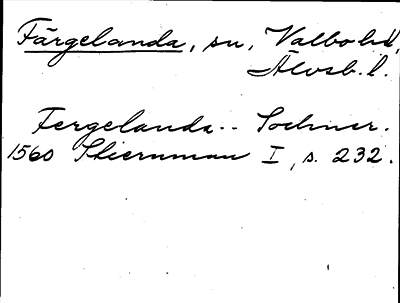 Färgelanda, sn, Valbo hd,
Älvsb. l.
Fergelanda -- Sochner.
1560 Stiernman I, s. 232.